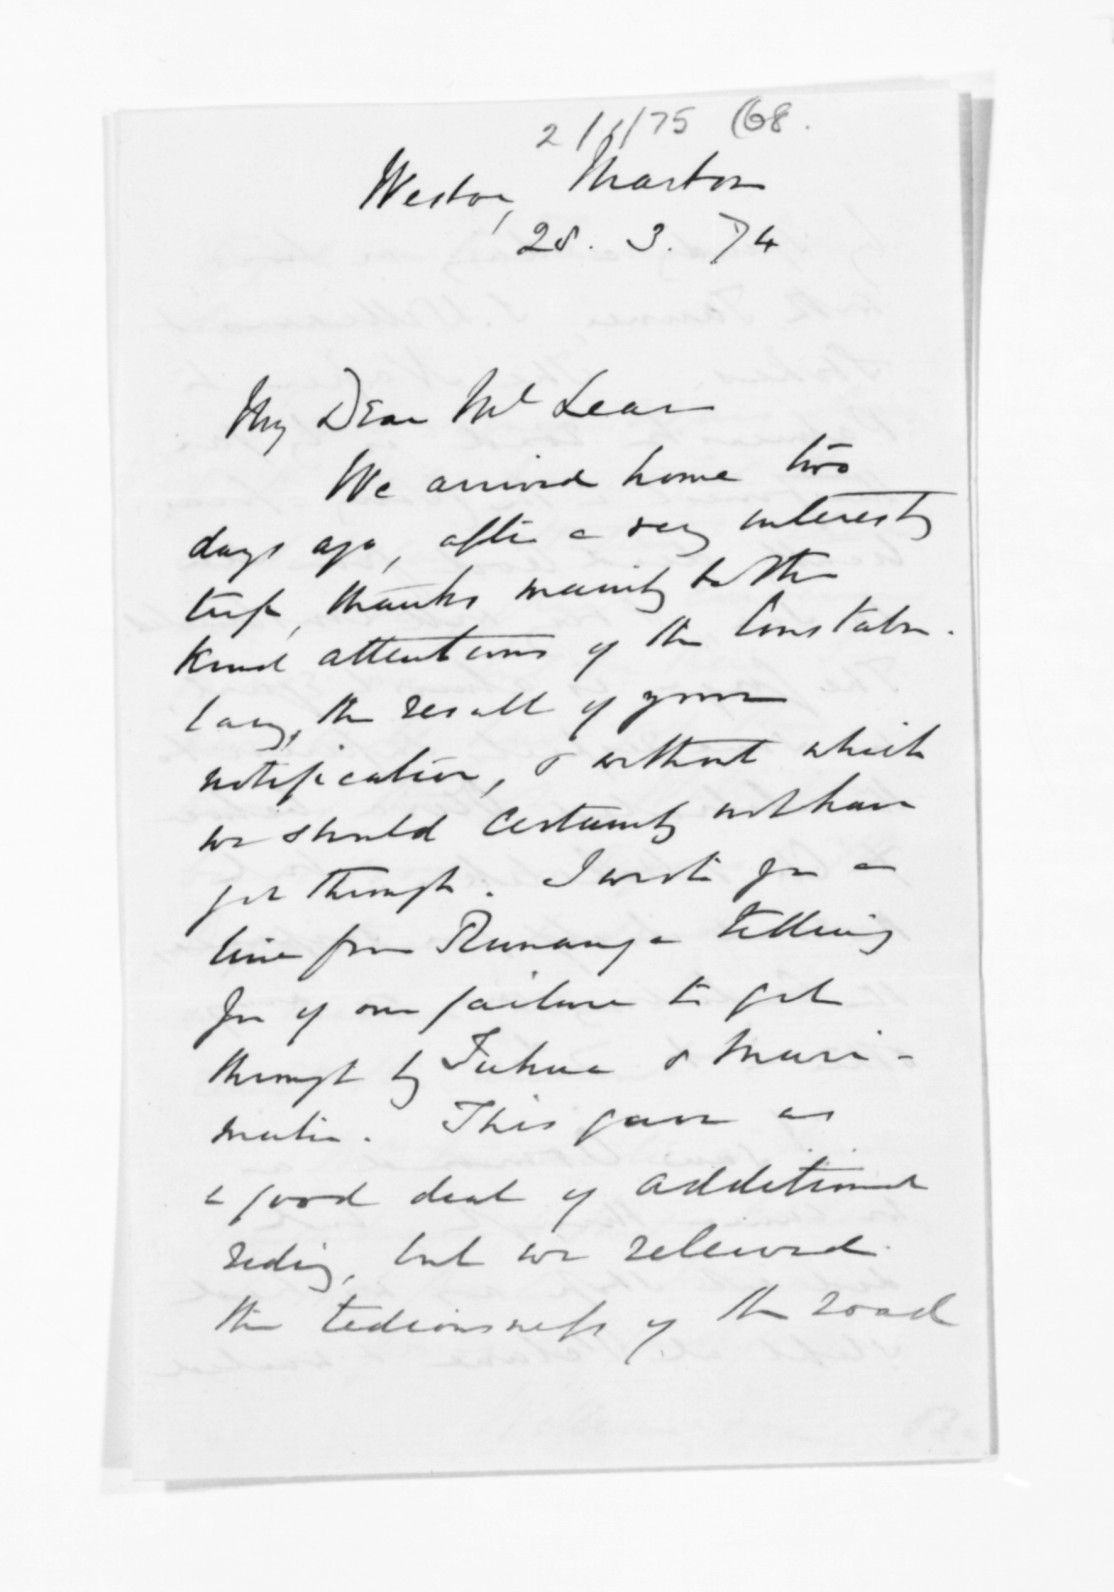 2/6/75 (68.
Westoe, Marton
28. 3. 74
My Dear McLean
We arrived home two
days ago, after a very interesting
trip, thanks mainly to the
kind attentions of the Constabu-
lary, the result of your
notification, & without which
we should certainly not have
got through. I wrote you a
line from Runanga telling
you of our failure to get
through by Tuhua & Muri-
motu. This gave us
a good deal of additional
riding, but we relieved
the tediousness of the road